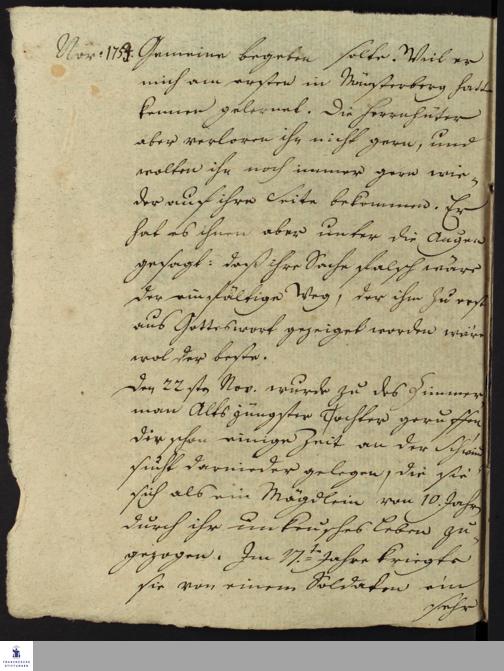 Nov: 1754. Gemeine begeben solte. Weil er
mich am ersten in Münsterberg hatt
kennen gelernet. Die Herrnhüter
aber verloren ihn nicht gern, und
wolten ihn noch immer gern wie„
der auf ihre Seite bekommen. Er
hat es ihnen aber unter die Augen
gesagt: daß ihre Sache falsch wäre
der einfältige Weg, der ihm zu erst
aus Gotteswort gezeiget worden wäre
wol der beste.
Den 22ste Nov. wurde zu des Zimmer
man Alts jüngster Tochter geruffen
die schon einige Zeit an der Schwind
sucht darnieder gelegen, die sie
sich als ein Mägdlein von 10. Jahr
durch ihr unkeusches Leben zu„
gezogen. Im 17.te Jahre kriegte
sie von einem Soldaten ein
sehr
FRANCKESCHE
STIFTUNGEN